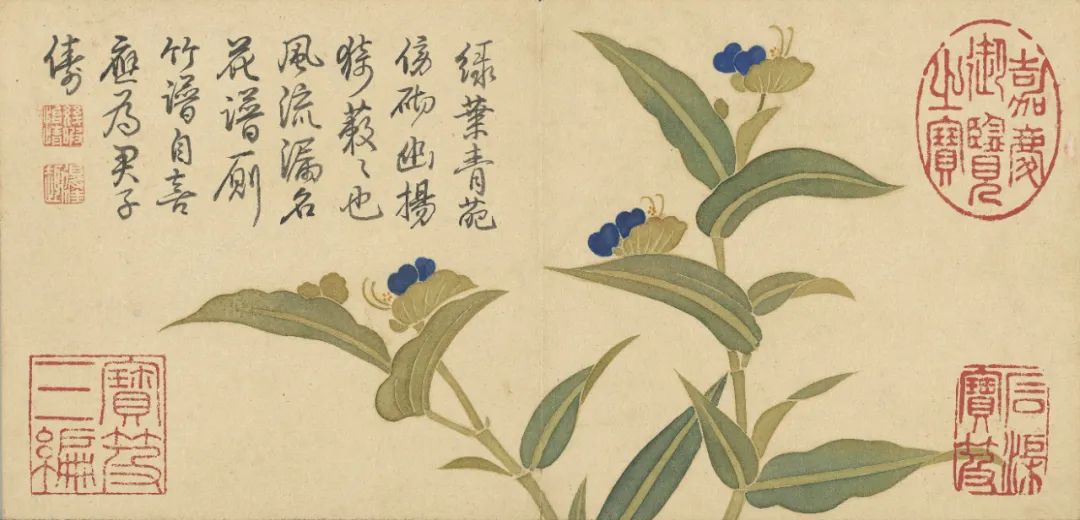 綠葉青葩
傍砌幽揚
猗蔌〻也
風流漏名
花譜厠
竹譜自喜
應為君子
儔
嘉慶
御覽
之寶
石渠
寶笈
寶笈
三編